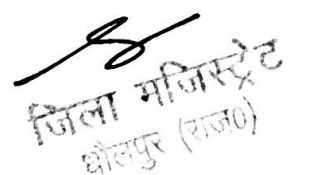 जिला मजिस्ट्रेट
धौलपुर (राज0)